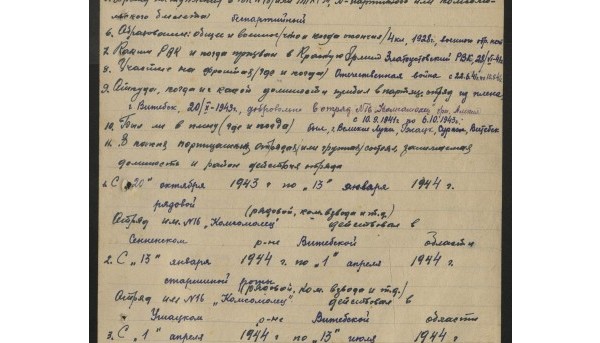 льского билета беспартийный
6. Образование: общее и военное (что и когда окончил) 4 кл. 1928г., военного обр. нет
7. Каким РВК и когда призван в Красную Армию Златоустовский РВК,
8. Участие на фронтах (где и когда) Отечественная война с 22.6.41
9. Откуда, когда и с какой должности прибыл в партиз. отряд из плена
г. Витебск, 20/X-1943г., добровольно в отряд №16 "Комсомолец"
с 10.9.1941г. до 6.10.1943г.
10. Был ли в плену (где и когда) был, г. Великие Луки, Сураж, Витебск
11. В каких партизанских отрядах или группах состоял, занимаемая
должность и район действия отряда
1. С "20" октября 1943 г по "13" января 1944 г.
рядовой
(рядовой, ком. взвода и т.д.)
Отряд им. №16 "Комсомолец" действовал в
Сенненском р-не Витебской области
2. С "13" января 1944 г. по "1" апреля 1944 г.
старшиной роты
(рядовой, ком. взвода и т.д.)
Отряд им №16 "Комсомолец" действовал в
Ушацком р-не Витебской области
3. С "1" апреля 1944 г по "13" июля 1944 г